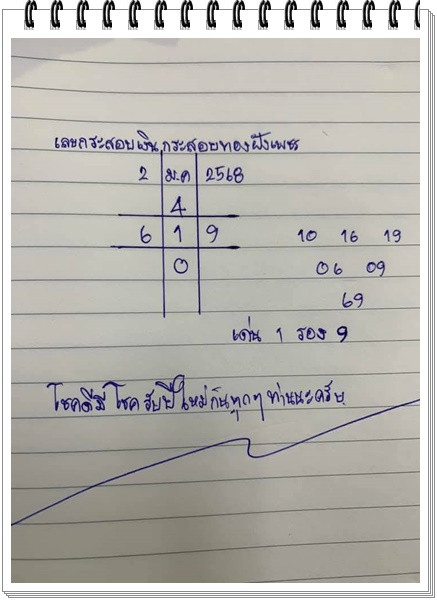 เลขกระสอบเงิน กระสอบทองฝังเพชร
2 ม.ค 2568
4
6 1 9 10 16 19
0 06 09
69
เด่น 1 รอง 9
โชคดีมีโชครับปีใหม่กันทุกๆท่านนะครับ